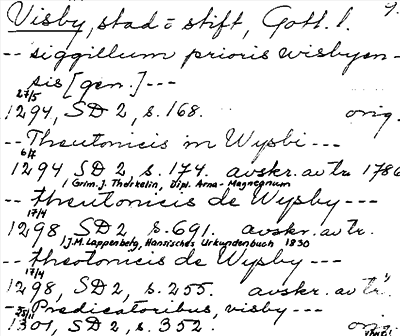 Visby, stad o stift, Gotl. l. 9.
-- siggillum prioris wisbyen-
sis [gen.] ---
27/5
1294, SD 2, s. 168. orig.
-- Theutonicis in Wysbi ---
6/7
1294 SD 2, s. 174. avskr. av tr. 1786
/ Grim. J. Thorkelin, Dipl. Arna-Magnæanum
-- theutonicis de Wysby ---
17/4
1298, SD 2, s. 691. avskr. av tr.
/ J.M. Lappenberg, Hansisches Urkundenbuch 1830
-- theotonicis de Wysby ---
17/4
1298, SD 2, s. 255. avskr. av tr.
-- Predicatoribus, visby ---
1301, SD 2, s. 352.